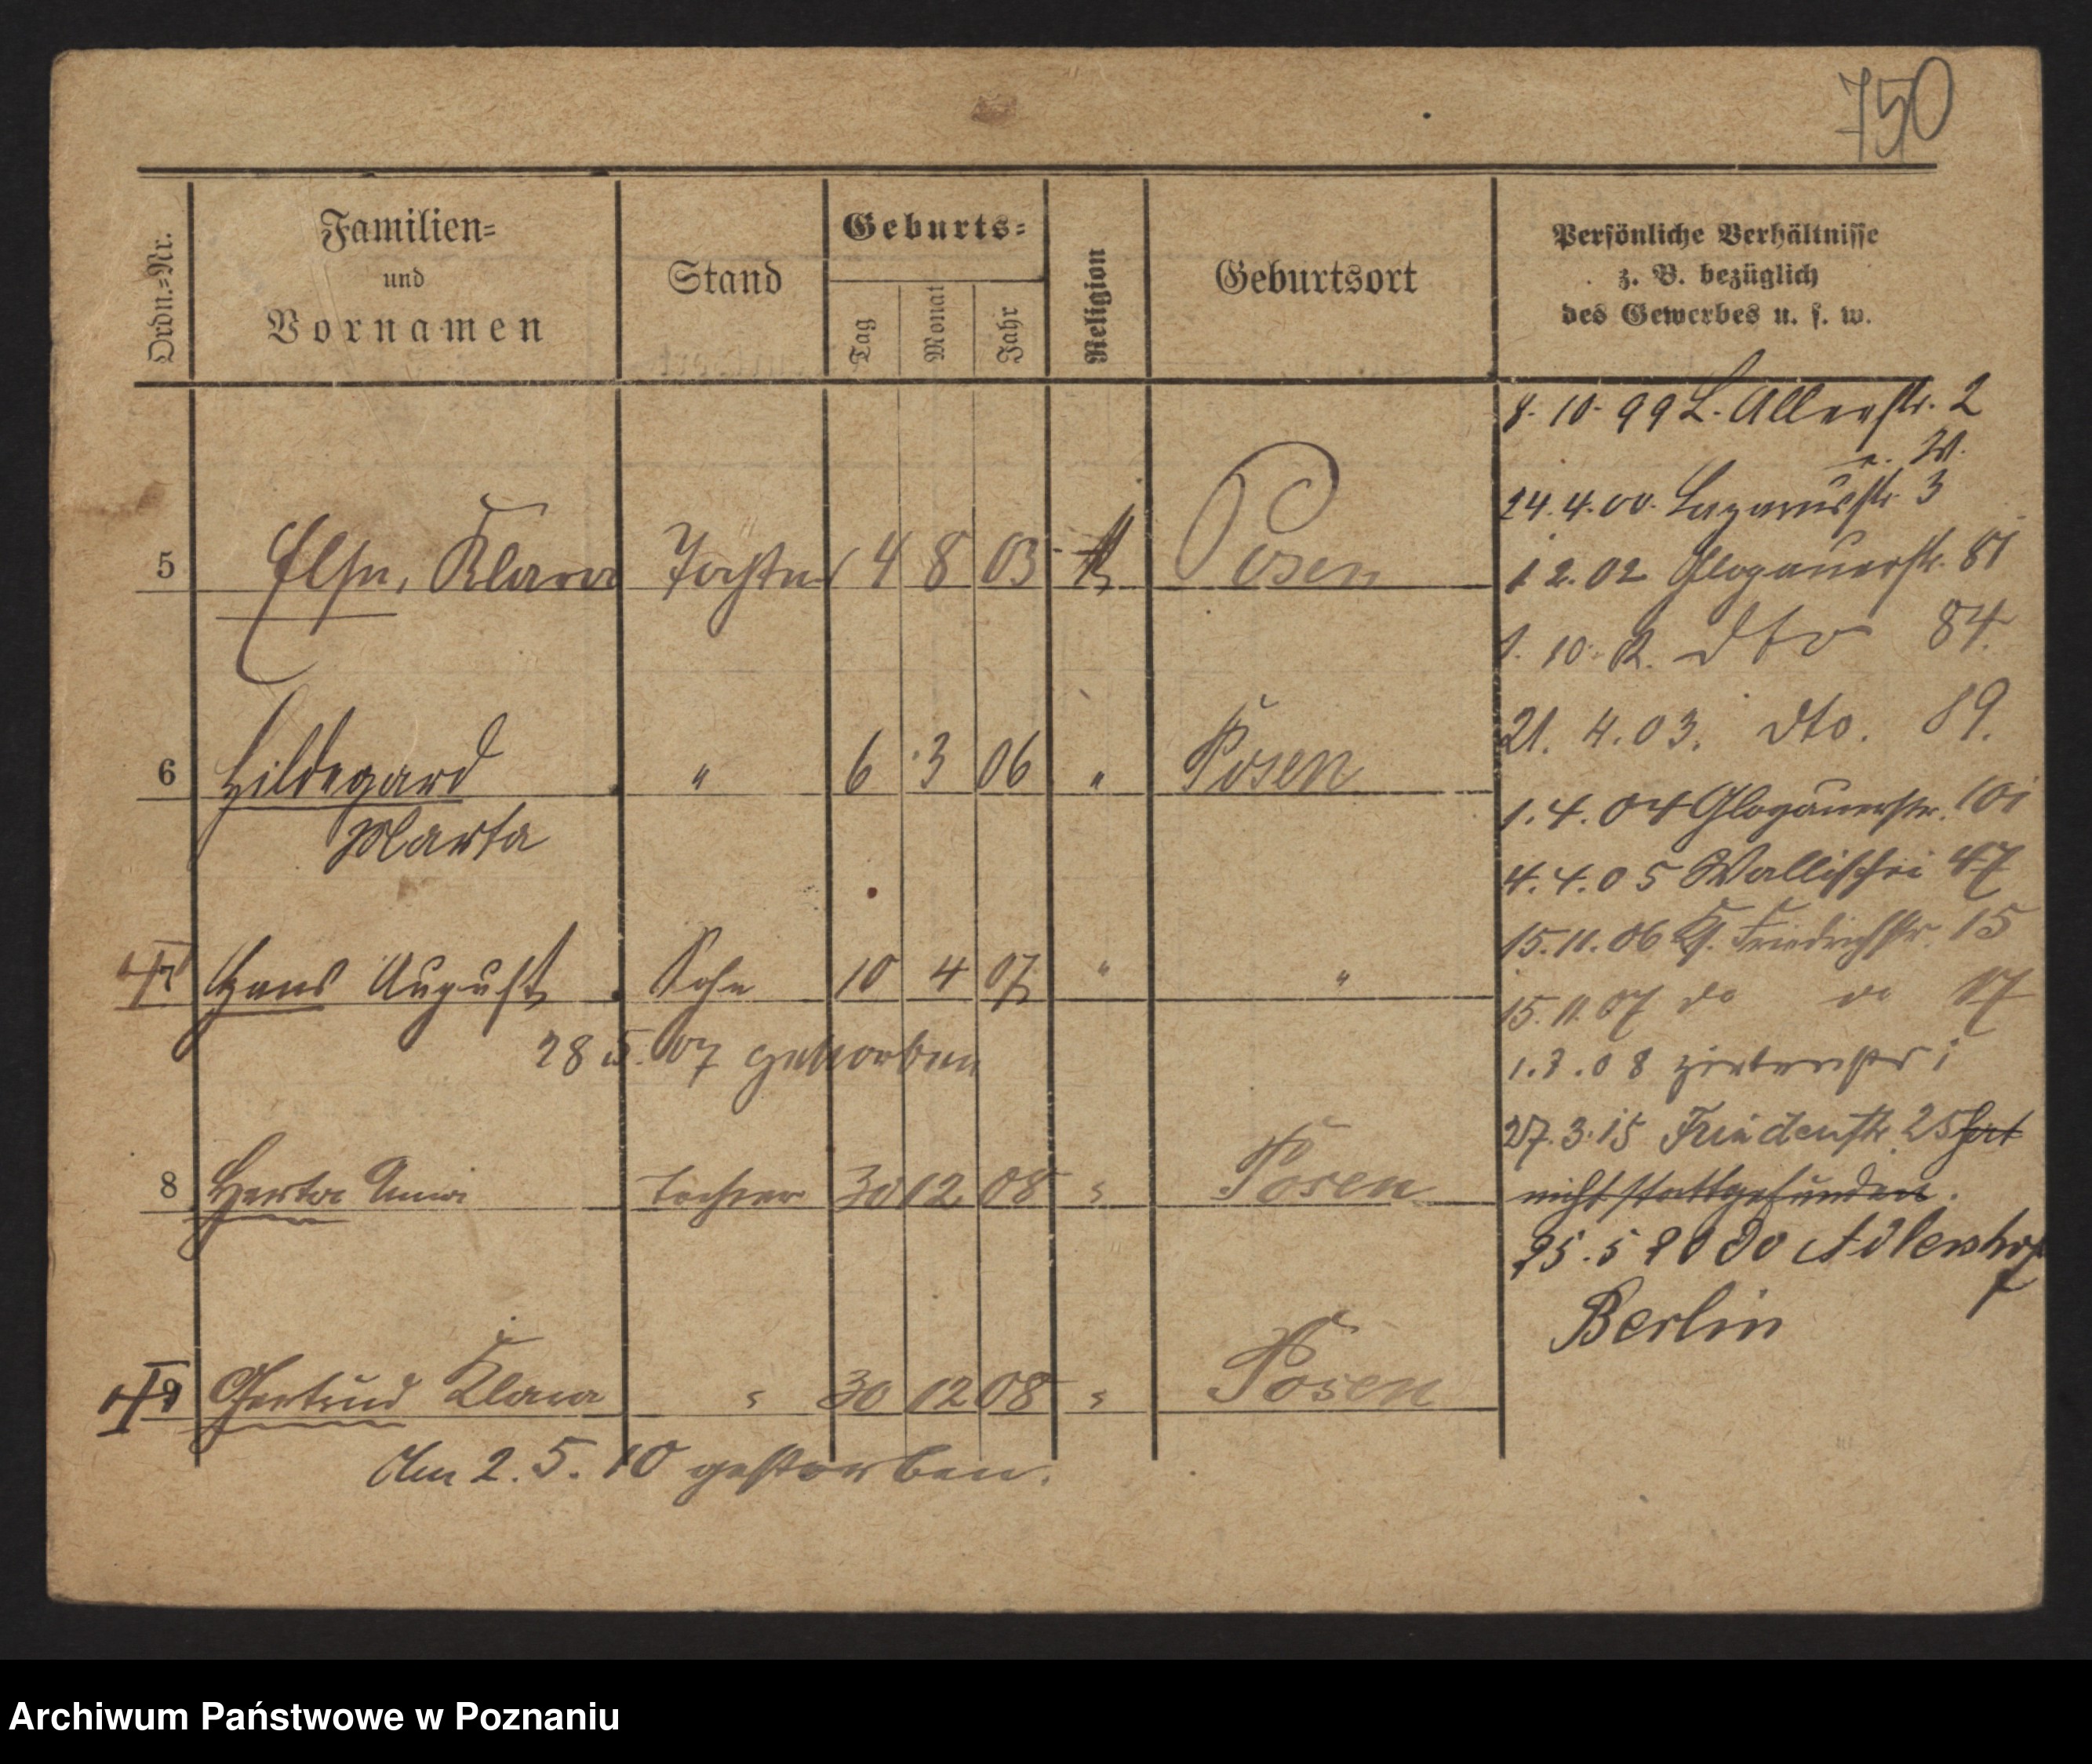 750
Ordn.-Nr.
Familien-
und
Vornamen
Stand
Geburts-
Tag
Monat
Jahr
Religion
Geburtsort
Persönliche Verhältnisse
z. B. bezüglich
des Gewerbes u. s. w.
5 Else, Klara Tochter 4 8 03 Posen
6 Hildegard " 6 3 06 " Posen
Marta
7 Hans August Sohn 10 4 07 " "
28 5. 07 gestorben
8 Herta Anna Tochter 30 12 08 " Posen
9 Gertrud Klara " 30 12 08 " Posen
Am 2. 5. 10 gestorben.
8. 10. 99 L. Allerstr. 2
24. 4. 00. Lazarusstr. 3
1 2. 02 Glogauerstr. 81
1. 10. 2. dto 84.
21. 4. 03. dto. 89.
1. 4. 04 Glogauerstr. 101
4. 4. 05 Wallischei 47
15. 11. 06 Friedrichstr. 15
15. 11. 07 do do 17
1. 3. 08
27. 3. 15 Friedenstr. 25 hat
nicht stattgefunden.
25. 5 20 Adlershof
Berlin
Archiwum Państwowe w Poznaniu